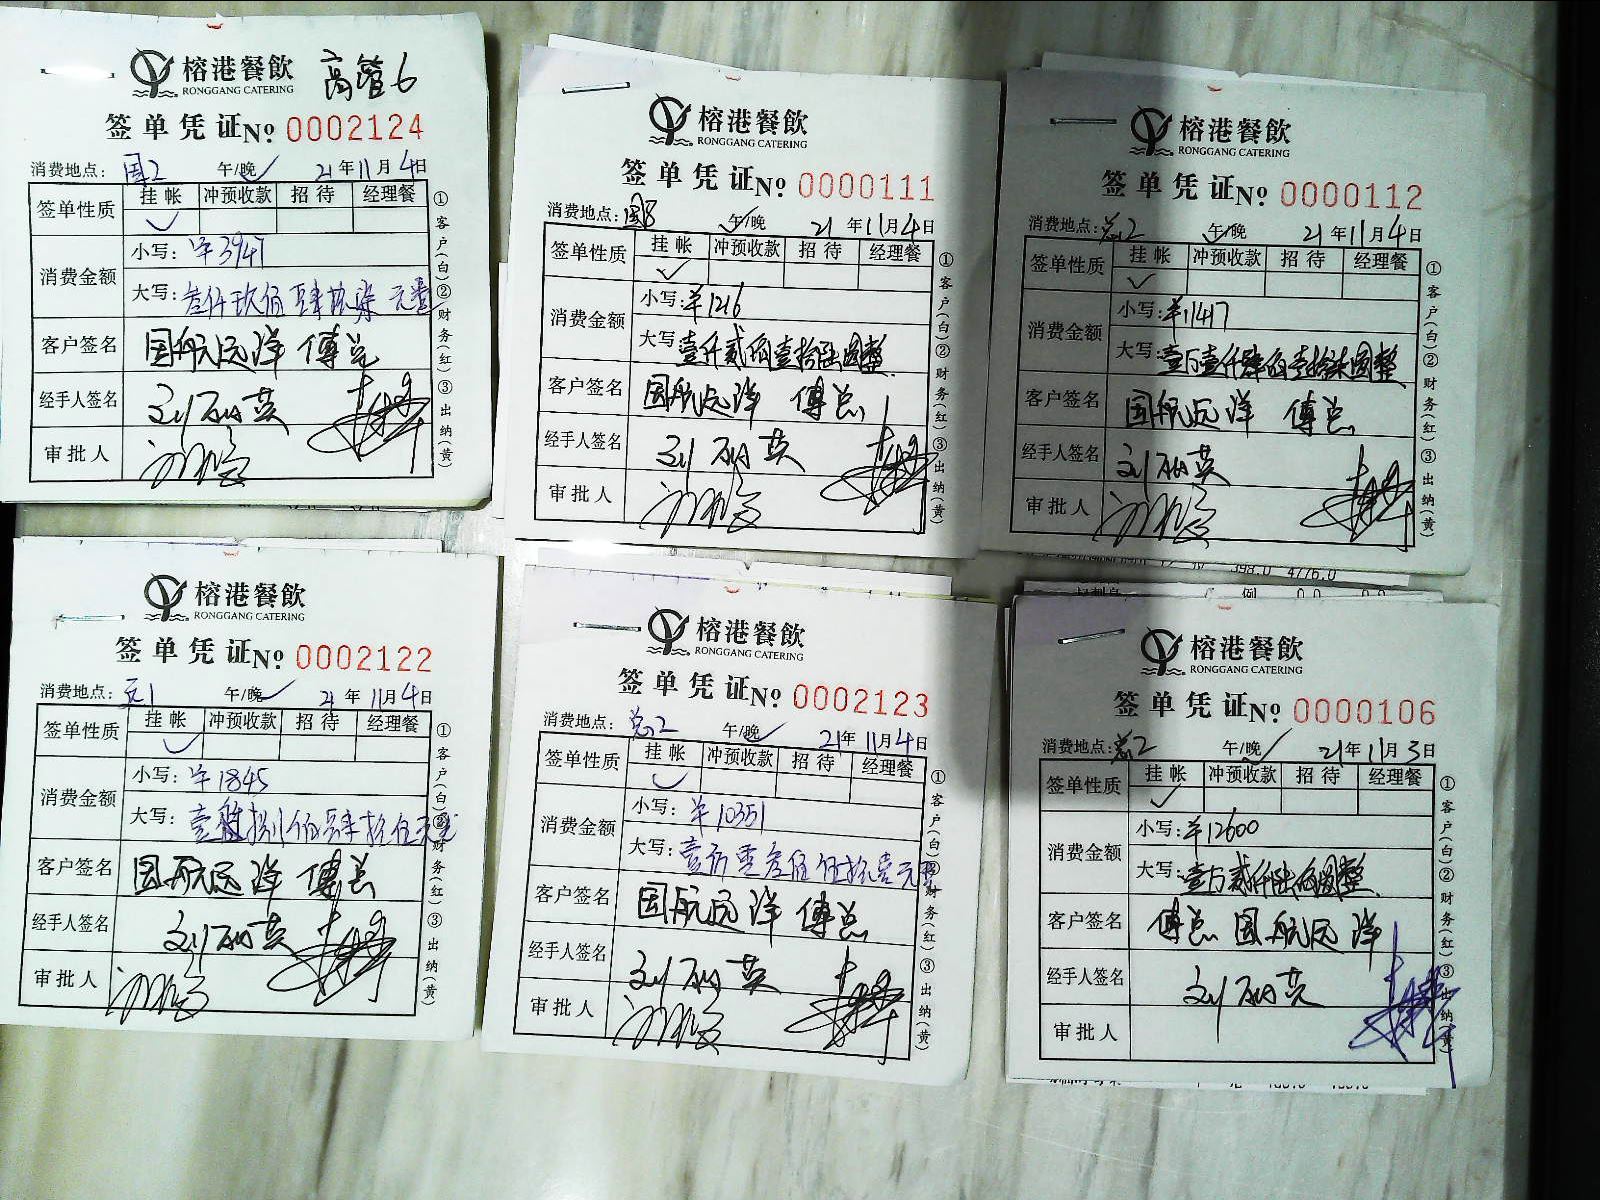 榕港餐飲 高管6
RONGGANG CATERING
签单凭证No 0002124
消费地点：国2 午/晚 21年11月4日
签单性质 挂帐 冲预收款 招待 经理餐
消费金额 小写：￥3947
大写：叁仟玖佰肆拾柒元整
客户签名 国航远洋 傅总
经手人签名 刘丽英
审批人
①客户(白)②财务(红)③出纳(黄)
榕港餐飲
RONGGANG CATERING
签单凭证No 0000111
消费地点：国8 午/晚 21年11月4日
签单性质 挂帐 冲预收款 招待 经理餐
消费金额 小写：￥1216
大写：壹仟贰佰壹拾陆圆整
客户签名 国航远洋 傅总
经手人签名 刘丽英
审批人
①客户(白)②财务(红)③出纳(黄)
榕港餐飲
RONGGANG CATERING
签单凭证No 0000112
消费地点：总2 午/晚 21年11月4日
签单性质 挂帐 冲预收款 招待 经理餐
消费金额 小写：￥11417
大写：壹万壹仟肆佰壹拾柒圆整
客户签名 国航远洋 傅总
经手人签名 刘丽英
审批人
①客户(白)②财务(红)③出纳(黄)
398.0 4776.0
榕港餐飲
RONGGANG CATERING
签单凭证No 0002122
消费地点：元1 午/晚 21年11月4日
签单性质 挂帐 冲预收款 招待 经理餐
消费金额 小写：￥1845
大写：壹仟捌佰肆拾伍元整
客户签名 国航远洋 傅总
经手人签名 刘丽英
审批人
①客户(白)②财务(红)③出纳(黄)
榕港餐飲
RONGGANG CATERING
签单凭证No 0002123
消费地点：总2 午/晚 21年11月4日
签单性质 挂帐 冲预收款 招待 经理餐
消费金额 小写：￥10351
大写：壹万零叁佰伍拾壹元整
客户签名 国航远洋 傅总
经手人签名 刘丽英
审批人
①客户(白)②财务(红)③出纳(黄)
榕港餐飲
RONGGANG CATERING
签单凭证No 0000106
消费地点：总2 午/晚 21年11月3日
签单性质 挂帐 冲预收款 招待 经理餐
消费金额 小写：￥12600
大写：壹万贰仟陆佰圆整
客户签名 傅总 国航远洋
经手人签名 刘丽英
审批人
①客户(白)②财务(红)③出纳(黄)